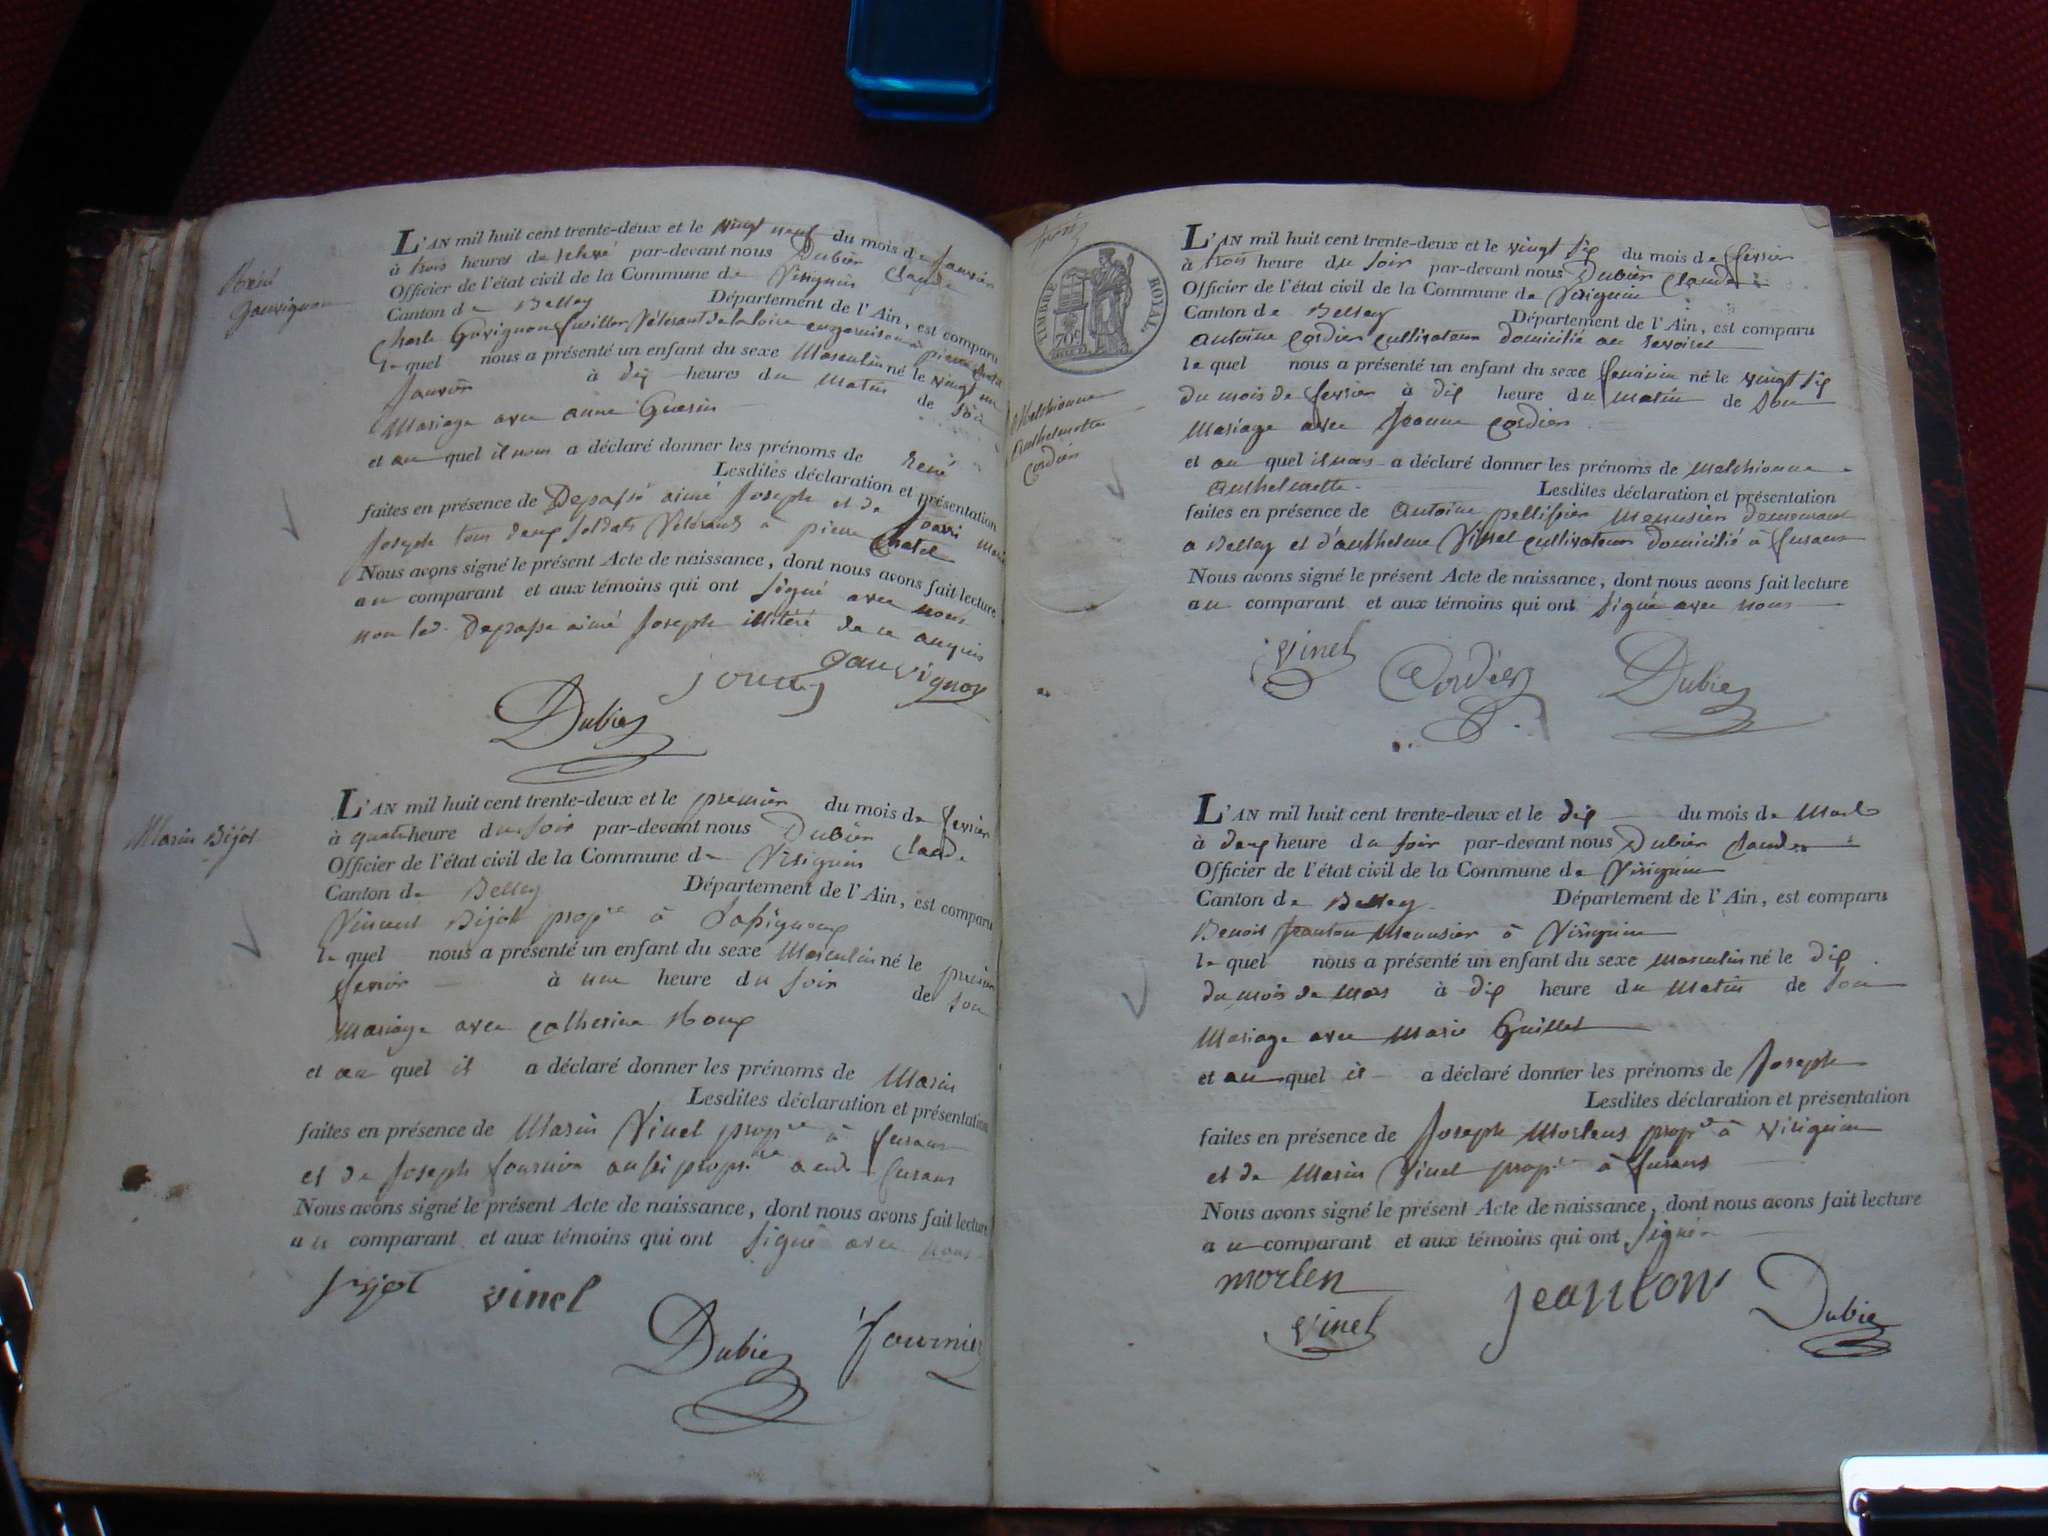 René
Gauvignon
L'AN mil huit cent trente-deux et le vingt neuf du mois de janvier
à trois heures de relevé par-devant nous Dubier Claude
Officier de l'état civil de la Commune de Virignin
Canton de Belley Département de l'Ain, est comparu
Charle Gavignon fusillier Vétérant de la loire en garnison à pierre chatel
le quel nous a présenté un enfant du sexe Masculin né le vingt
janvier à dix heures du matin de son
Mariage avec anne Guerin
et au quel il nous a déclaré donner les prénoms de René
Lesdites déclaration et présentation
faites en présence de Depassé aimé Joseph et de
Joseph tous deux soldats Vétérants à pierre Chatel
Nous avons signé le présent Acte de naissance, dont nous avons fait lecture
au comparant et aux témoins qui ont signé avec nous
non led. Depasse aimé Joseph illitéré de ce enquis
Gauvignon
Dubier
Marin Bijot
L'AN mil huit cent trente-deux et le premier du mois de fevrier
à quatre heure du soir par-devant nous Dubier Claude
Officier de l'état civil de la Commune de Virignin
Canton de Belley Département de l'Ain, est comparu
Vincent Bijot prop.re à
le quel nous a présenté un enfant du sexe Masculin né le premier
fevrier à une heure du soir de son
Mariage avec Catherine Roux
et au quel il a déclaré donner les prénoms de Marin
Lesdites déclaration et présentation
faites en présence de Marin Vinel prop.re à furans
et de Joseph fournier aussi propr.re aud. furans
Nous avons signé le présent Acte de naissance, dont nous avons fait lecture
au comparant et aux témoins qui ont signé avec nous
Bijot vinel
Dubier fournier
TIMBRE ROYAL
70c
Melchionne
Anthelmette
Cordier
L'AN mil huit cent trente-deux et le vingt six du mois de fevrier
à trois heure du soir par-devant nous Dubier Claude
Officier de l'état civil de la Commune de Virignin
Canton de Belley Département de l'Ain, est comparu
antoine Cordier cultivateur domicilié au revoiret
le quel nous a présenté un enfant du sexe feminin né le vingt six
du mois de fevrier à dix heure du matin de son
Mariage avec Jeanne Cordier
et au quel il nous a déclaré donner les prénoms de Melchionne
Anthelmette Lesdites déclaration et présentation
faites en présence de Antoine pellissier Menusier demeurant
a Belley et d'anthelme Vinel cultivateur domicilié à furans
Nous avons signé le présent Acte de naissance, dont nous avons fait lecture
au comparant et aux témoins qui ont signé avec nous
vinel Cordier Dubier
L'AN mil huit cent trente-deux et le dix du mois de Mars
à deux heure du soir par-devant nous Dubier Claude
Officier de l'état civil de la Commune de Virignin
Canton de Belley Département de l'Ain, est comparu
Benoit Jeanton Menusier à Virignin
le quel nous a présenté un enfant du sexe masculin né le dix
du mois de Mars à dix heure du Matin de son
Mariage avec Marie Guillet
et au quel il a déclaré donner les prénoms de Joseph
Lesdites déclaration et présentation
faites en présence de Joseph Mortens prop.re à Virignin
et de Marin Vinel prop.re à furans
Nous avons signé le présent Acte de naissance, dont nous avons fait lecture
au comparant et aux témoins qui ont signé
morten Jeanton Dubier
vinel